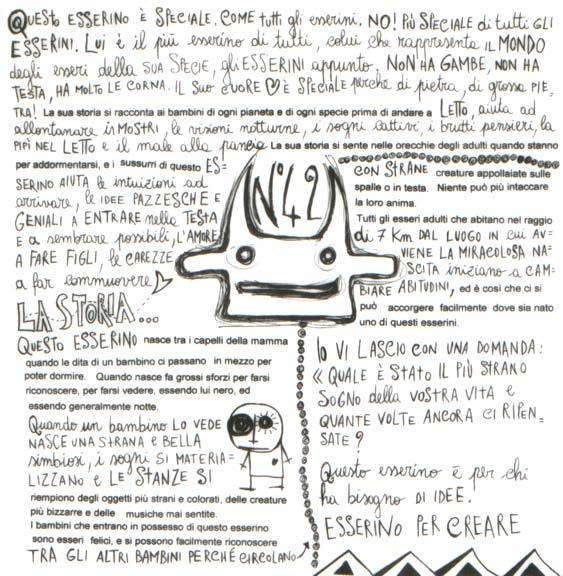 QUESTO ESSERINO È SPECIALE. COME tutti gli esserini. NO! PIÙ SPECIALE di tutti GLI
ESSERINI. Lui è il più esserino di tutti, colui che rappresenta IL MONDO
degli esseri della SUA SPECIE, gli ESSERINI appunto. NON HA GAMBE, NON HA
TESTA, HA MOLTO LE CORNA. IL SUO CUORE È SPECIALE perchè di pietra, di grossa PIE=
TRA! La sua storia si racconta ai bambini di ogni pianeta e di ogni specie prima di andare a LETTO, aiuta ad
allontanare i MOSTRI, le visioni notturne, i sogni cattivi, i brutti pensieri, la
PIPÌ NEL LETTO e il male alla pancia La sua storia si sente nelle orecchie degli adulti quando stanno
per addormentarsi, e i sussurri di questo ES=
SERINO AIUTA le intuizioni ad
arrivare, le IDEE PAZZESCHE E
GENIALI A ENTRARE nella TESTA
E a sembrare possibili, L'AMORE
A FARE FIGLI, le CAREZZE
a far commuovere
N°42
CON STRANE creature appollaiate sulle
spalle o in testa. Niente può più intaccare
la loro anima.
Tutti gli esseri adulti che abitano nel raggio
di 7 Km DAL LUOGO IN cui AV=
VIENE LA MIRACOLOSA NA=
SCITA iniziano a CAM=
BIARE ABITUDINI, ed è così che ci si
può accorgere facilmente dove sia nato
uno di questi esserini.
LA STORIA...
QUESTO ESSERINO nasce tra i capelli della mamma
quando le dita di un bambino ci passano in mezzo per
poter dormire. Quando nasce fa grossi sforzi per farsi
riconoscere, per farsi vedere, essendo lui nero, ed
essendo generalmente notte.
Quando un bambino LO VEDE
NASCE UNA STRANA E BELLA
simbiosi, i sogni SI MATERIA=
LIZZANO e LE STANZE SI
riempiono degli oggetti più strani e colorati, delle creature
più bizzarre e delle musiche mai sentite.
I bambini che entrano in possesso di questo esserino
sono esseri felici, e si possono facilmente riconoscere
TRA GLI ALTRI BAMBINI PERCHÉ CIRCOLANO
IO VI LASCIO CON UNA DOMANDA:
« QUALE È STATO IL PIÙ STRANO
SOGNO DELLA VOSTRA VITA E
QUANTE VOLTE ANCORA CI RIPEN=
SATE ?
Questo esserino è per chi
ha bisogno DI IDEE.
ESSERINO PER CREARE